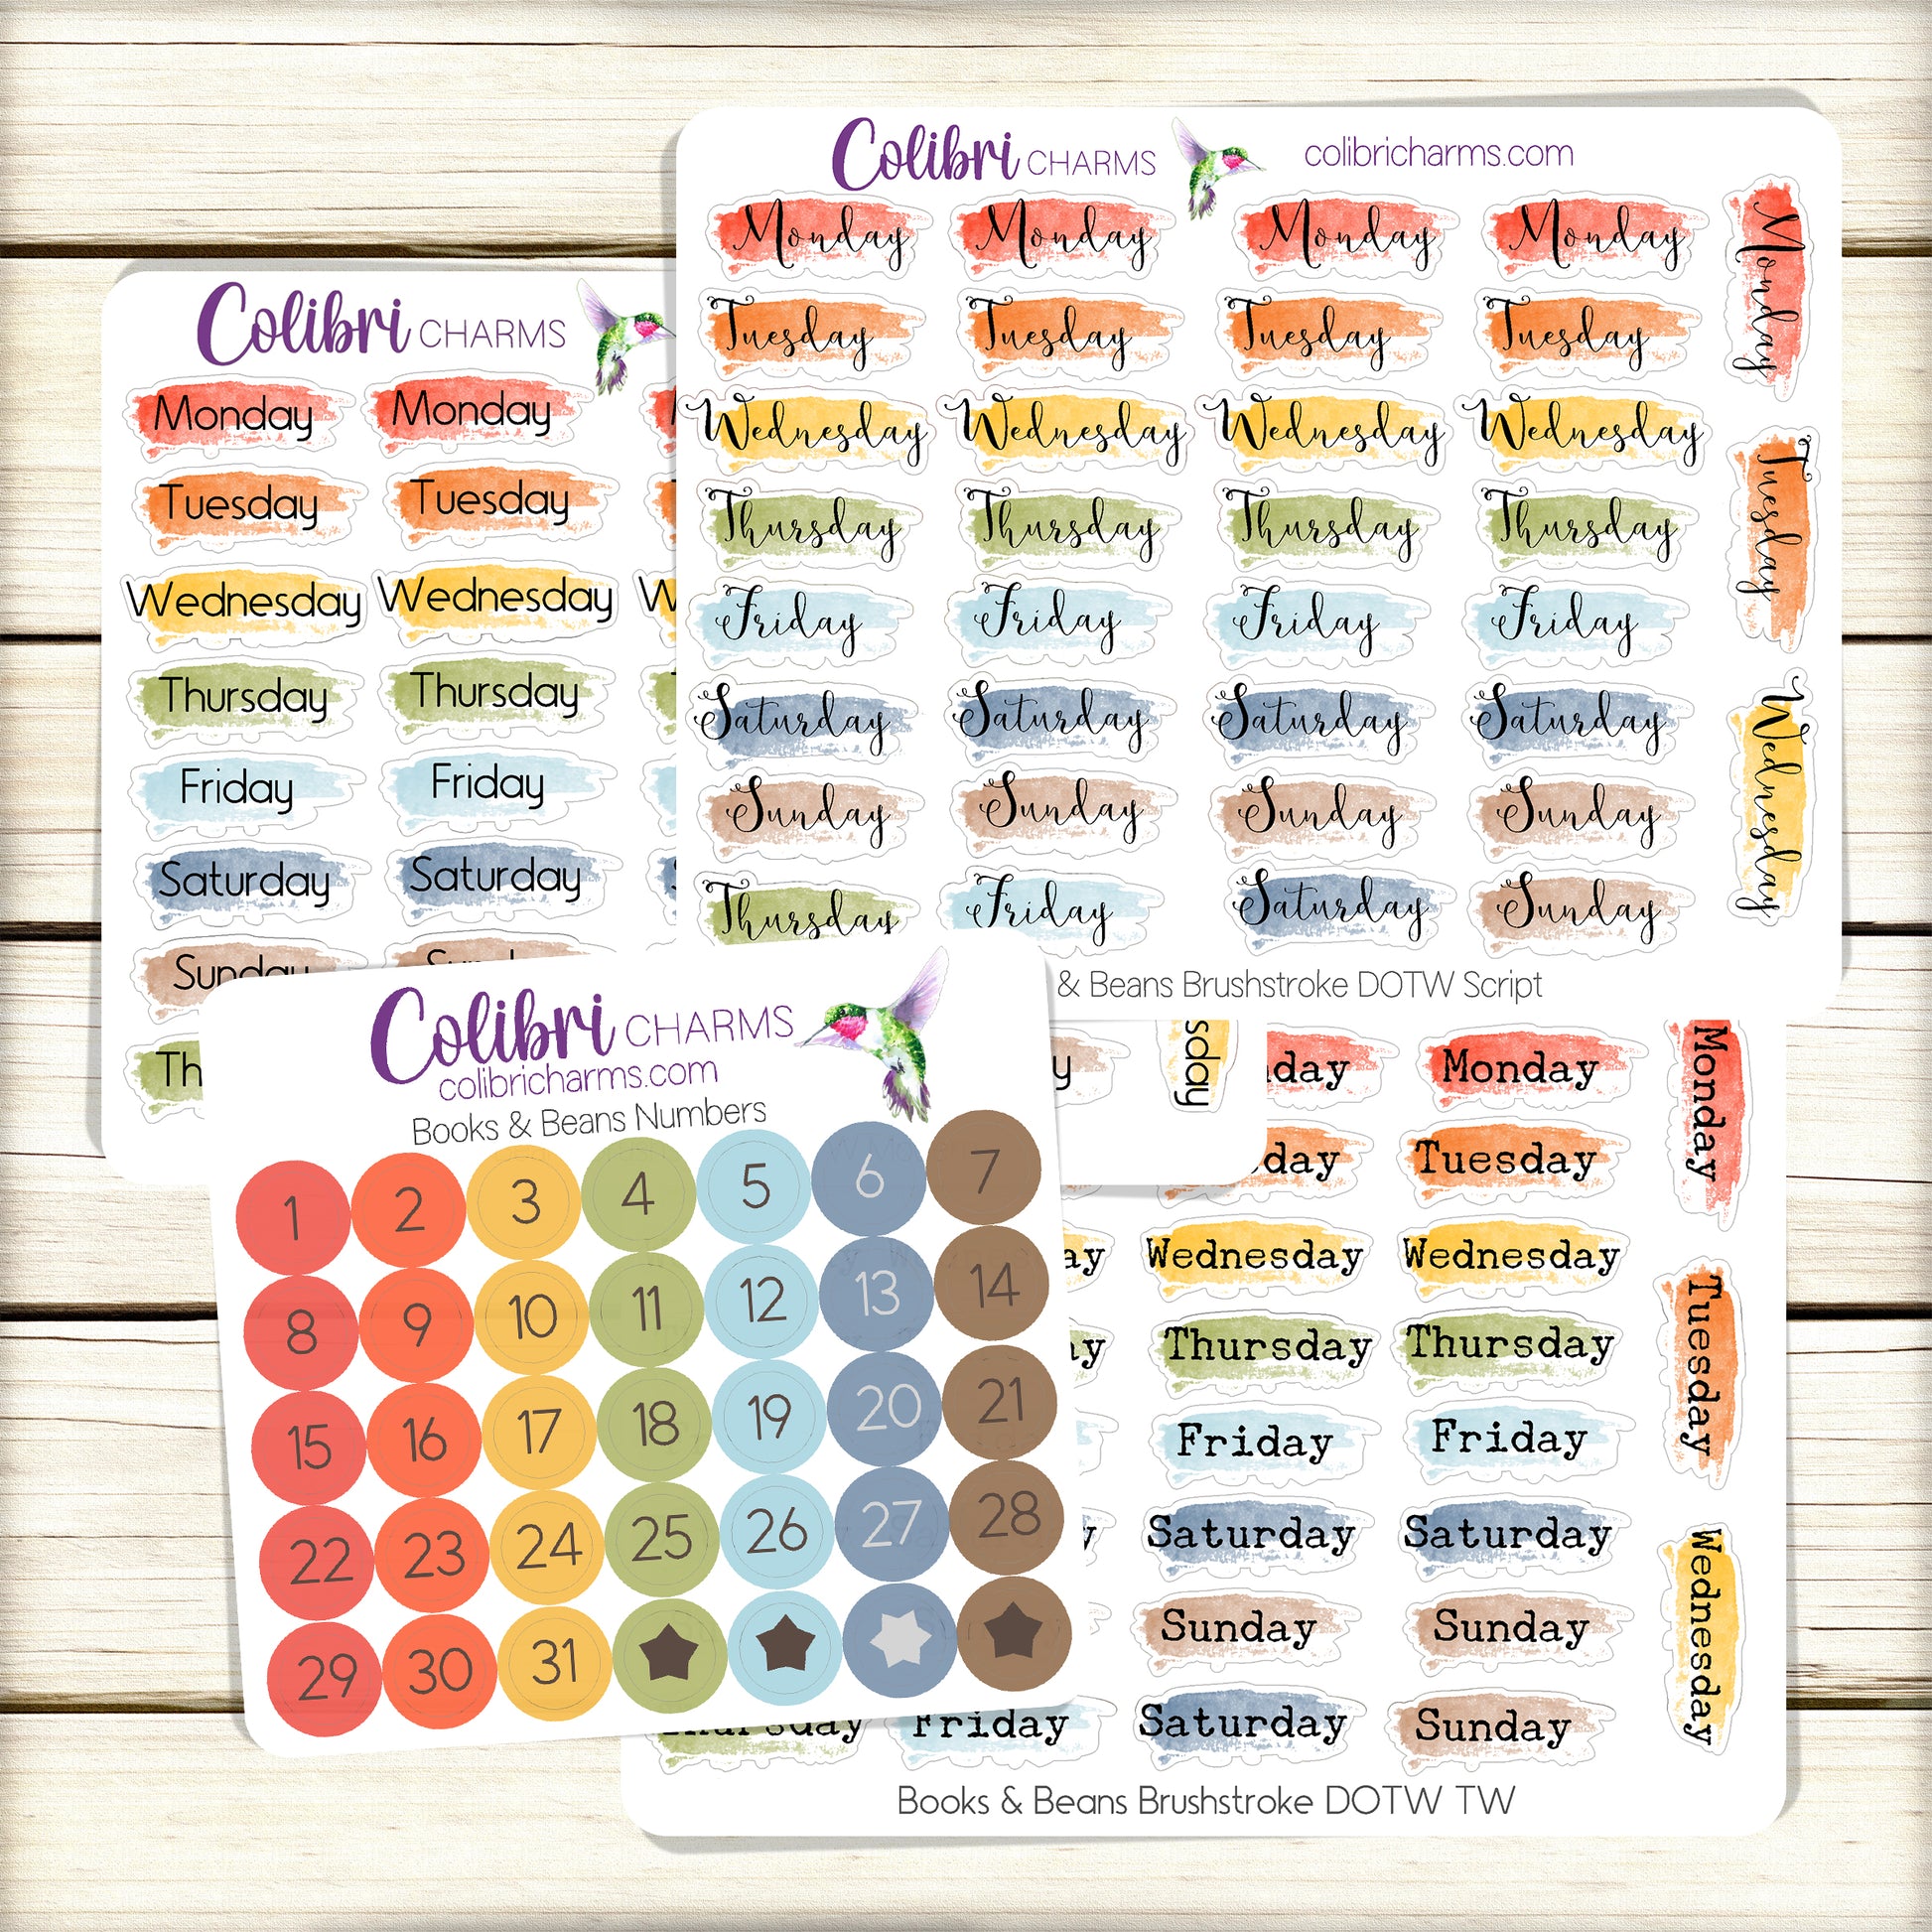 Colibri CHARMS colibricharms.com
Monday Monday Monday Monday Monday
Tuesday Tuesday Tuesday Tuesday Tuesday
Wednesday Wednesday Wednesday Wednesday Wednesday
Thursday Thursday Thursday Thursday
Friday Friday Friday Friday
Saturday Saturday Saturday Saturday
Sunday Sunday Sunday Sunday
Thursday Friday Saturday Sunday
& Beans Brushstroke DOTW Script
Colibri CHARMS
Monday Monday
Tuesday Tuesday
Wednesday Wednesday W
Thursday Thursday
Friday Friday
Saturday Saturday S
Sunday Sunday
Th
Colibri CHARMS
colibricharms.com
Books & Beans Numbers
1 2 3 4 5 6 7
8 9 10 11 12 13 14
15 16 17 18 19 20 21
22 23 24 25 26 27 28
29 30 31
y sday
day Monday Monday
day Tuesday Tuesday
ay Wednesday Wednesday Wednesday
ay Thursday Thursday
Friday Friday
y Saturday Saturday
Sunday Sunday
Thursday Friday Saturday Sunday
Books & Beans Brushstroke DOTW TW